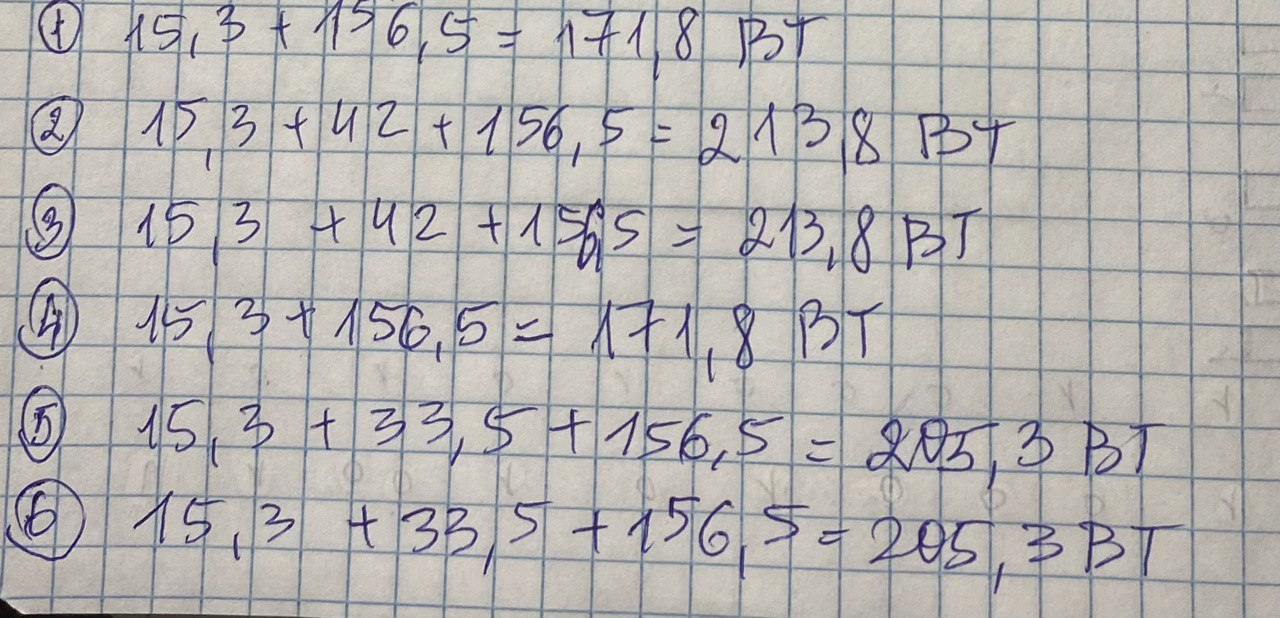 ① 15,3 + 156,5 = 171,8 ВТ
② 15,3 + 42 + 156,5 = 213,8 ВТ
③ 15,3 + 42 + 156,5 = 213,8 ВТ
④ 15,3 + 156,5 = 171,8 ВТ
⑤ 15,3 + 33,5 + 156,5 = 205,3 ВТ
⑥ 15,3 + 33,5 + 156,5 = 205,3 ВТ